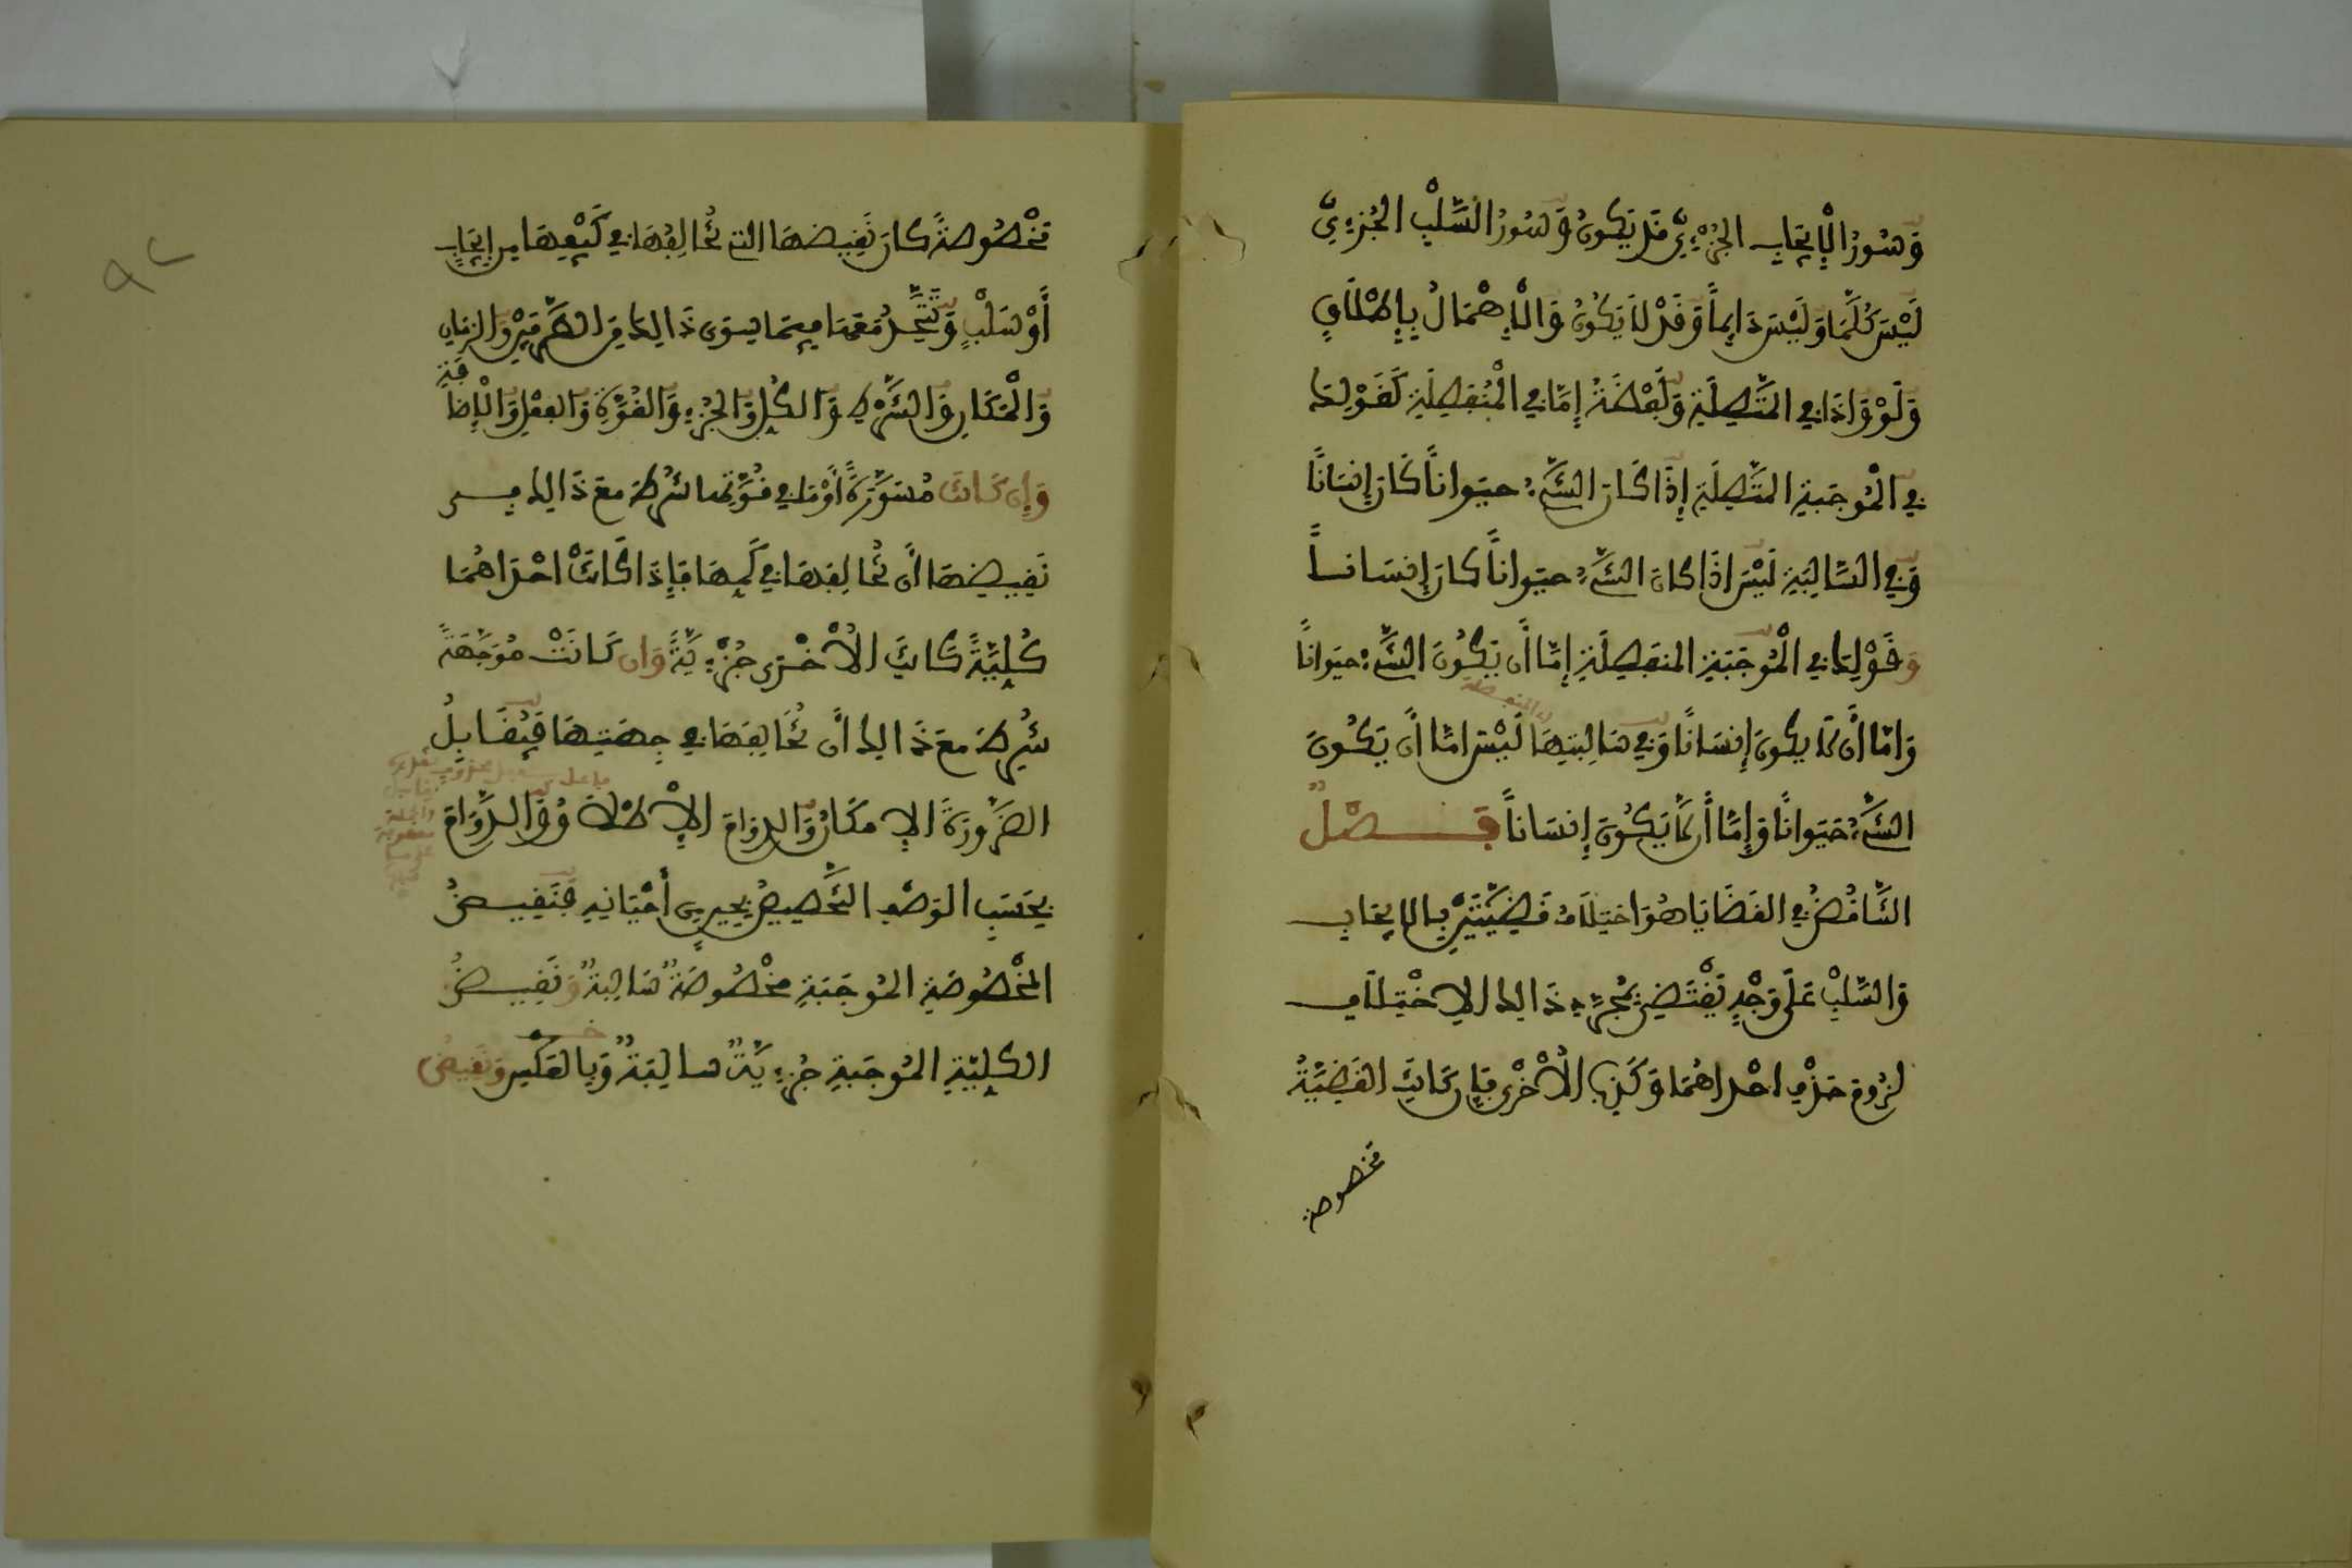 وَسُورُ الْإِيجَابِ الْجُزْءِيِّ قَدْ يَكُونُ وَسُورُ السَّلْبِ الْجُزْءِيِّ
لَيْسَ كُلَّمَا وَلَيْسَ دَايِماً وَقَدْ لَا يَكُونُ وَالْإِهْمَالُ بِإِطْلَاقِ
وَلَوْ وَإِذَا فِي الْمُتَّصِلَةِ وَلَفْظَةُ إِمَّا فِي الْمُنْفَصِلَةِ كَقَوْلِنَا
فِي الْمُوجَبَةِ الْمُتَّصِلَةِ إِذَا كَانَ الشَّيْءُ حيَواناً كَانَ إِنسَانًا
وَفِي السَّالِبَةِ لَيْسَ إذَا كان الشَّيْءُ حيَواناً كان إِنسَاناً
وَقَوْلِنَا فِي الْمُوجَبَةِ المنفَصِلَةِ إِمَّا أَن يَكُونَ الشَّيْءُ حيَواناً
وَإمَّا أَن لَّا يكونَ إِنسَانًا وَفِي سَالِبَتِهَا لَيْسَ إمَّا أَن يَكُونَ
الشَّيْءُ حَيَوانًا وَإِمَّا أَن لَّا يَكُونَ إِنسَاناً فَصْلٌ
التَّنَاقُضُ فِي القَضَايَا هُوَ اختِلَافُ قَضِيَّتَيْنِ بِالإيجَابِ
وَالسَّلْبِ عَلَى وَجْهٍ يَقْتَضِي بِمُجَرَّدِ ذَالِكَ الاِخْتِلَافِ
لزُومَ صِدْقِ احْدَاهُمَا وَكَذِبِ الْأُخْرَى فَإِن كَانَتِ القَضِيَّةُ
مخصوصة
مَخْصُوصَةً كانَ نَقِيضهَا التي تُخَالِفُهَا فِي كَيْفِهَا مِن إِيجَابٍ
أَوْ سَلْبٍ وَتَتَّحِدُ مَعَهَا فِيمَا سِوَى ذَالِكَ مِن الطَّرَفَيْنِ وَالزمَانِ
وَالْمَكَانِ وَالشَّرْطِ وَالكُلِّ وَالجُزْءِ وَالقُوَّةِ وَالفِعْلِ وَالْإِضَا
فَةِ
وَإِن كَانَتْ مُسَوَّرَةً أَوْ مَا فِي قُوَّتِهَا شُرِطَ معَ ذَالِكَ فِي
نَقِيضِهَا أَن تُخَالِفَهَا فِي كَمِّهَا فَإِذَا كَانَتْ احْدَاهُمَا
كُلِيَّةً كَانَتِ الْأُخْرَى جُزْءِيَّةً وَإن كَانَتْ مُوَجَّهَةً
شُرِطَ معَ ذَالِكَ أَن تُخَالِفَهَا فِي جِهَتِهَا فَيُقَابِلُ
الضَّرُورَةَ الإِمكَانُ وَالدوَامَ الْإِطْلَاقُ وَالدَّوَامَ
بِحَسَبِ الوَصْفِ التَّخْصِيصُ بِحِينٍ مِن أَحْيَانِهِ فَنَقِيضُ
المَخْصُوصَةِ المُوجَبَةِ مَخْصُوصَةٌ سَالِبَةٌ وَنَقِيضُ
الكُلِيَّةِ المُوجَبَةِ جُزْءِيَّةٌ سالِبَةٌ وَبِالعَكْسِ وَنَقِيضُ